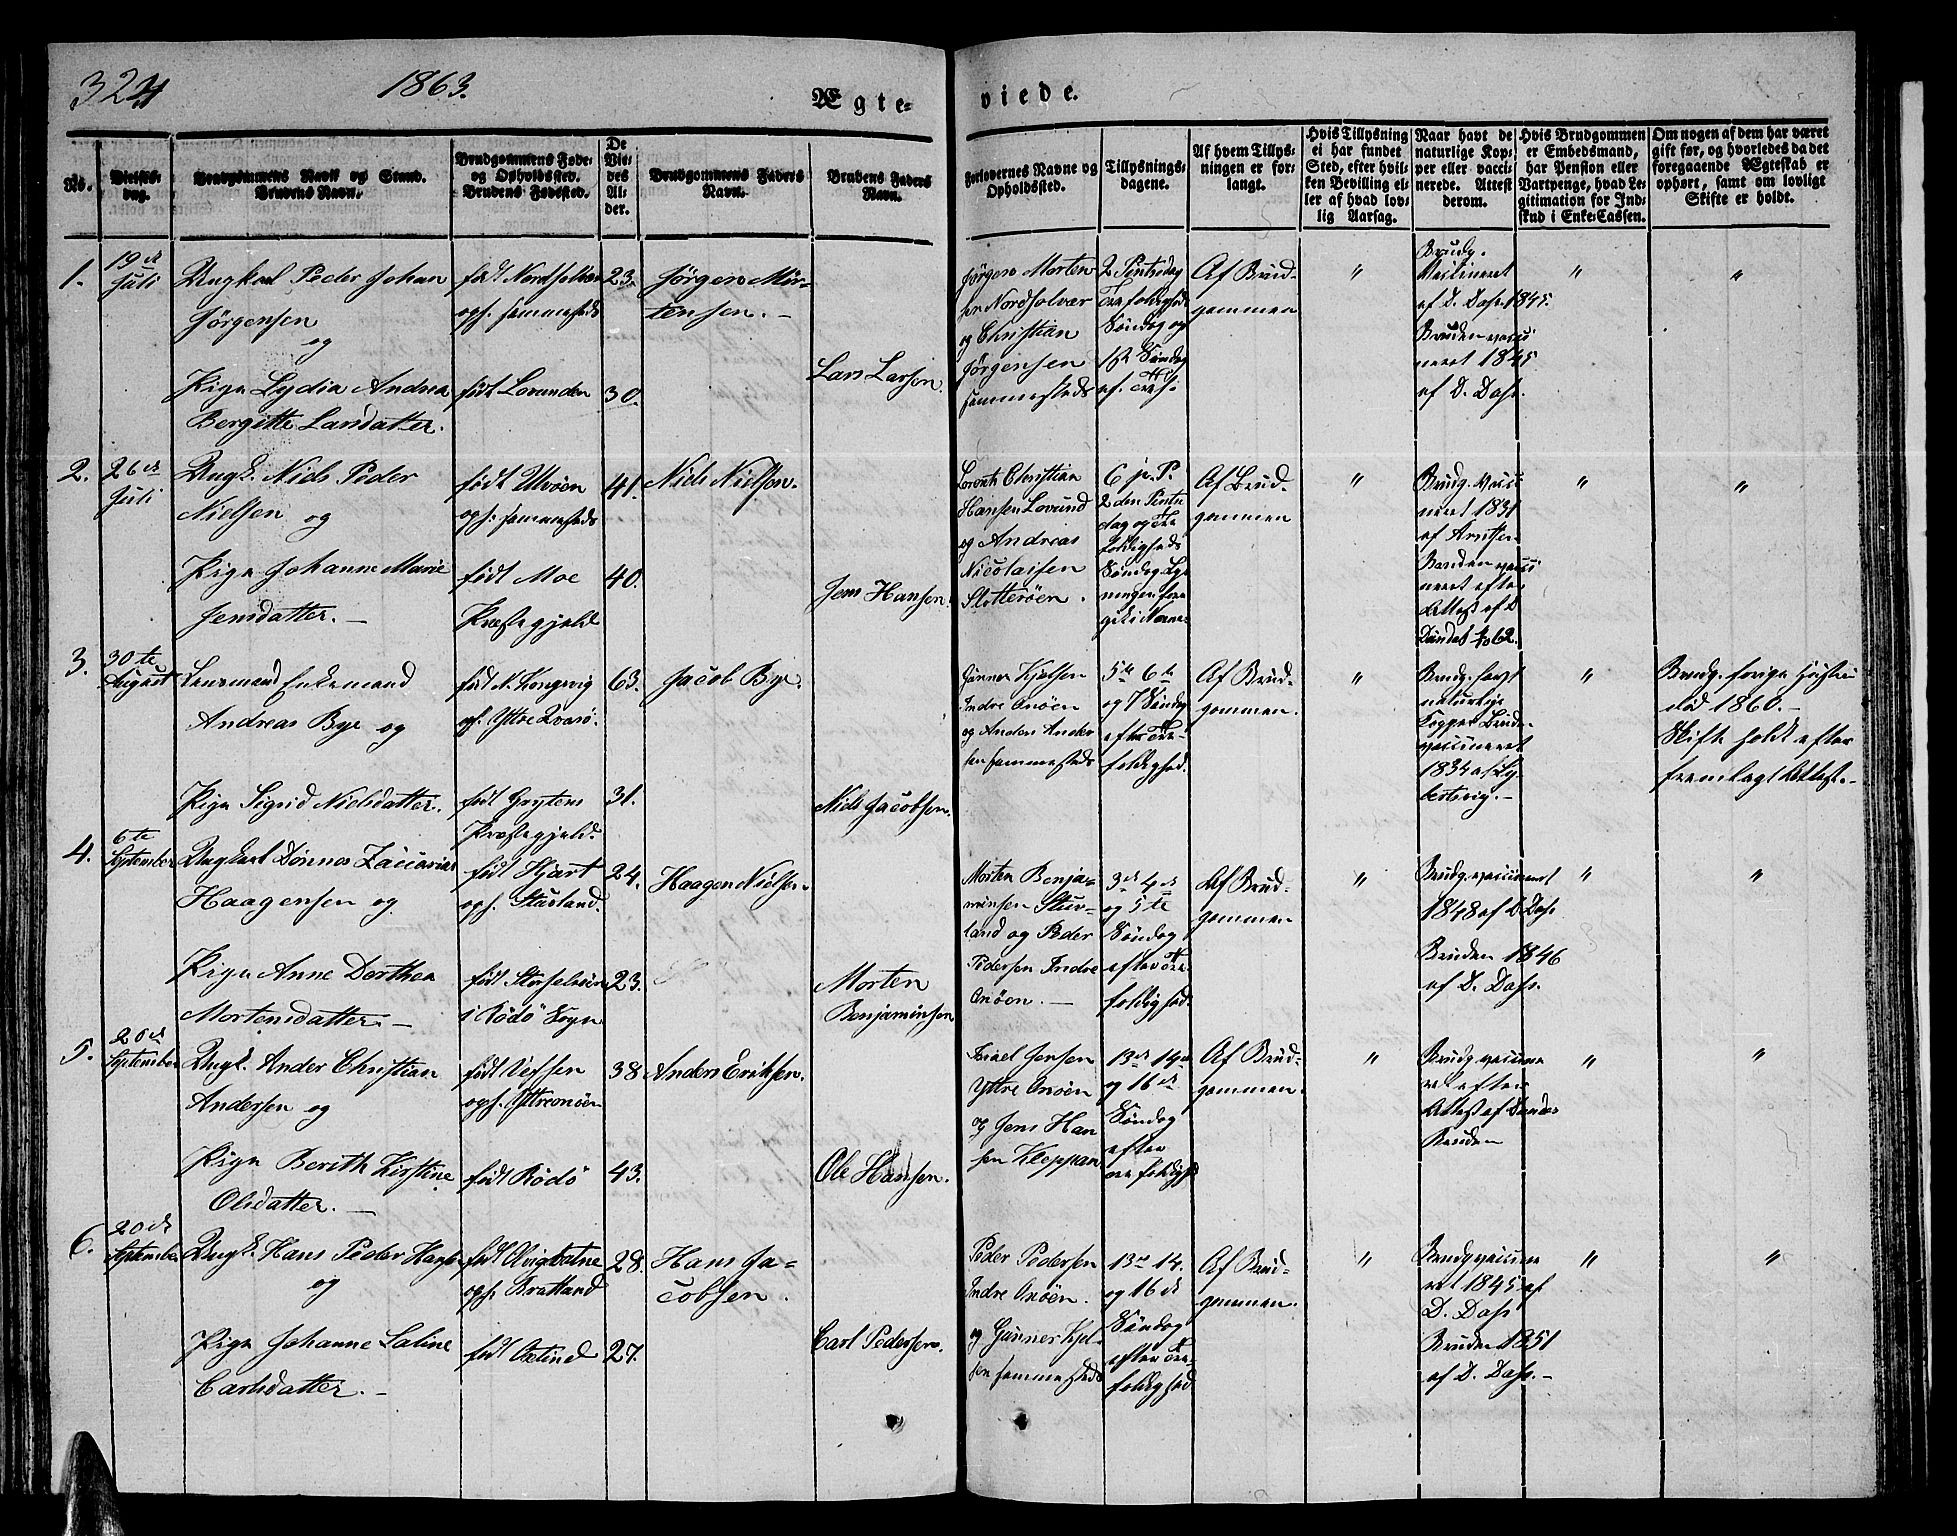 324
1863.
Ægte-
viede.
No.
Vielses-
dag.
Brudgommens Navn og Stand.
Brudens Navn.
Brudgommens Føde-
og Opholdssted.
Brudens Fødested.
De
Vie-
des
Al-
der.
Brudgommens Faders
Navn.
Brudens Faders
Navn.
Forlovernes Navne og
Opholdssted.
Tillysnings-
dagene.
Af hvem Tillys-
ningen er for-
langt.
Hvis Tillysning
ei har fundet
Sted, efter hvil-
ken Bevilling el-
ler af hvad lov-
lig Aarsag.
Naar havt de
naturlige Kop-
per eller vacci-
nerede. Attest
derom.
Hvis Brudgommen
er Embedsmand,
har Pension eller
Vartpenge, hvad Le-
gitimation for Ind-
skud i Enke-Cassen.
Om nogen af dem har været
gift før, og hvorledes da det
foregaaende Ægteskab er
ophørt, samt om lovligt
Skifte er holdt.
1.
19de
Juli
Ungkarl Peder Johan
Jørgensen
og
Pige Lydia Andrea
Bergitte Larsdatter.
født
oph. sammesteds
født Lovunden
23.
30.
Jørgen Mor-
tensen.
Lars Larsen.
Jørgen Morten-
sen Nordsolvær
og Christian
Jørgensen
sammesteds
2 Pintsedag
Trefoldigheds
Søndag og
1ste Søndag
ef. Tref.
Af Brud-
gommen
"
Brudg.
Vaccineret
af D. Dass 1845.
Bruden vacci
neret 1845
af D. Dass.
"
"
2.
26de
Juli
Ungk. Niels Peder
Nielsen og
Pige Johanne Marie
Jensdatter.
født
oph. sammesteds
født Moe
Præstegjeld
41.
40.
Niels Nielsen.
Jens Hansen.
Christian
Hansen Lovund
og Andreas
Nicolaisen
Slotterøen.
6 p. P.
2den Pintse
dag og Tre
foldigheds
Søndag
Af Brud-
gommen
"
Brudg. vacci
neret 1831
af
Bruden vacci
neret efter
Attest af
"
"
3.
30te
August
Lensmand Enkemand
Andreas Bye og
Pige Sigrid Nielsdatter.
født N.
op. Yttre Kvarø.
født Grytens
Præstegjeld.
63.
31.
Jacob Bye.
Niels Jacobsen.
Gunner Kjelsen
Indre Onøen
og Anders Ander
sen sammesteds
5te 6te
og 7 Søndag
efter Tre-
foldighed.
Af Brud-
gommen.
"
Brudg. havt
naturlige
Kopper Brude
vaccineret
1834 af
"
Brudg. forige Hustru
død 1860.
Skifte holdt efter
fremlagt Attest.
4.
6te
September
Ungkarl Dønnes Zaccarias
Haagensen og
Pige Anne Dorthea
Mortensdatter.
født Hjart
oph. Stuvland.
født
i Rødø Sogn
24.
23.
Haagen Nielsen
Morten
Benjaminsen
Morten Benja-
minsen Stuv-
land og Peder
Pedersen Indre
Onøen.
3de 4de
og 5te
Søndag
efter Tre-
foldighed.
Af Brud-
gommen
"
Brudg. vaccineret
1848 af D. Dass
Bruden 1846
af D. Dass.
"
"
5.
20de
September
Ungk. Ander Christian
Andersen og
Pige Berith Kirstine
Olsdatter.
født Vefsen
oph. Yttreonøen
født Rødø
38
43.
Anders Eriksen.
Ole Hansen.
Jensen
Yttre Onøen
og Jens Han
sen Kleppan
13de 14de
og 16de
Søndag
efter
Trefoldighd
Af Brud-
gommen.
"
Brudg. vaccine
ret efter
Attest af
Bruden
"
"
6.
20de
September
Ungk. Hans Peder Hans
og
Pige Johanne Laline
Carlsdatter.
født
oph. Bratland
født
28.
27.
Hans Ja-
cobsen.
Carl Pedersen.
Peder Pedersen
Indre Onøen.
og Gunner Kjel-
sen sammesteds
13de 14.
og 16de
Søndag
efter Tre-
foldighed
Af Brud-
gommen.
"
Brudg. vaccine
ret 1845 af
D. Dass
Bruden 1851
af D. Dass.
"
"